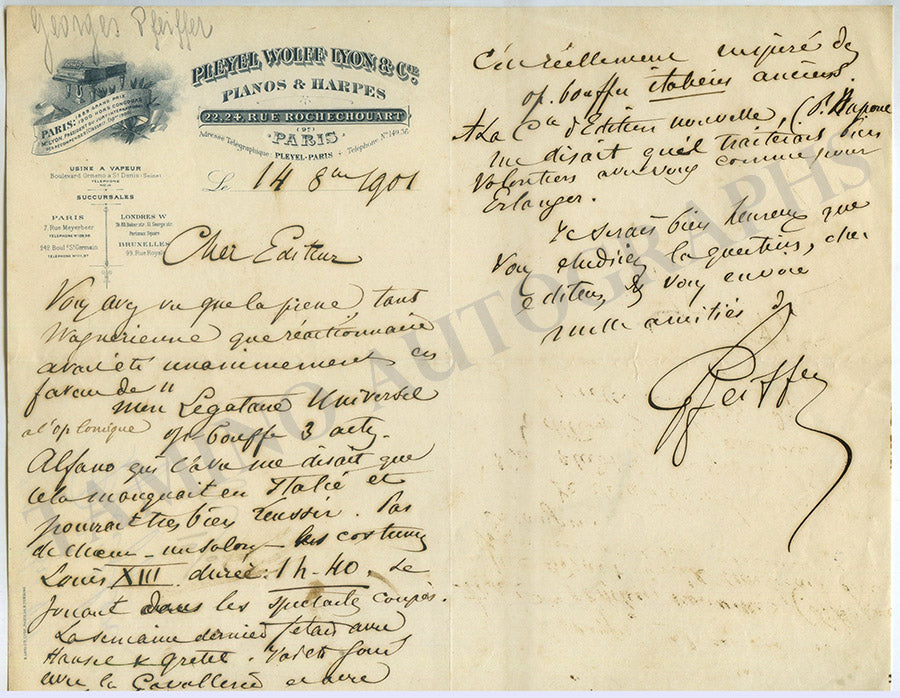 Georges Pfeiffer
PLEYEL WOLFF LYON & Cie
PIANOS & HARPES
22.24 RUE ROCHECHOUART
PARIS
Adresse Télégraphique: PLEYEL-PARIS + Téléphone No 149.56
PARIS: 1889 GRAND PRIX
1900 HORS CONCOURS
USINE A VAPEUR
Boulevard Ornano à St Denis (Seine)
TELEPHONE
SUCCURSALES
PARIS
7. Rue Meyerbeer
242. Boul. St Germain
LONDRES W
BRUXELLES
99. Rue Royale
Le 14 8bre 1901
Cher Editeur
Vous avez vu que la presse, tant
Wagnerienne que réactionnaire
avait été unanimement en
faveur de "
Mon Legataire Universel
a l'op Comique
op. bouffe 3 actes.
Alfano qui l'a vu me disait que
cela manquait en Italie et
pourrait très bien reussir. Pas
de choeur - un salon - les costumes
Louis XIII durée: 1h-40. Se
jouant dans les spectacles coupés.
La semaine derniere j'étais avec
Hansel & Gretel.
avec la Cavalleria et avec
C'est réellement inspiré des
op. bouffes italiens anciens.
La Cie d'Edition nouvelle, (P.
me disait qu'il traiterait bien
volontiers avec vous comme pour
Erlanger.
Je serais bien heureux que
vous etudiiez la question, cher
editeur, & vous envoie
mille amitiés
G Pfeiffer
TAMINO AUTOGRAPHS